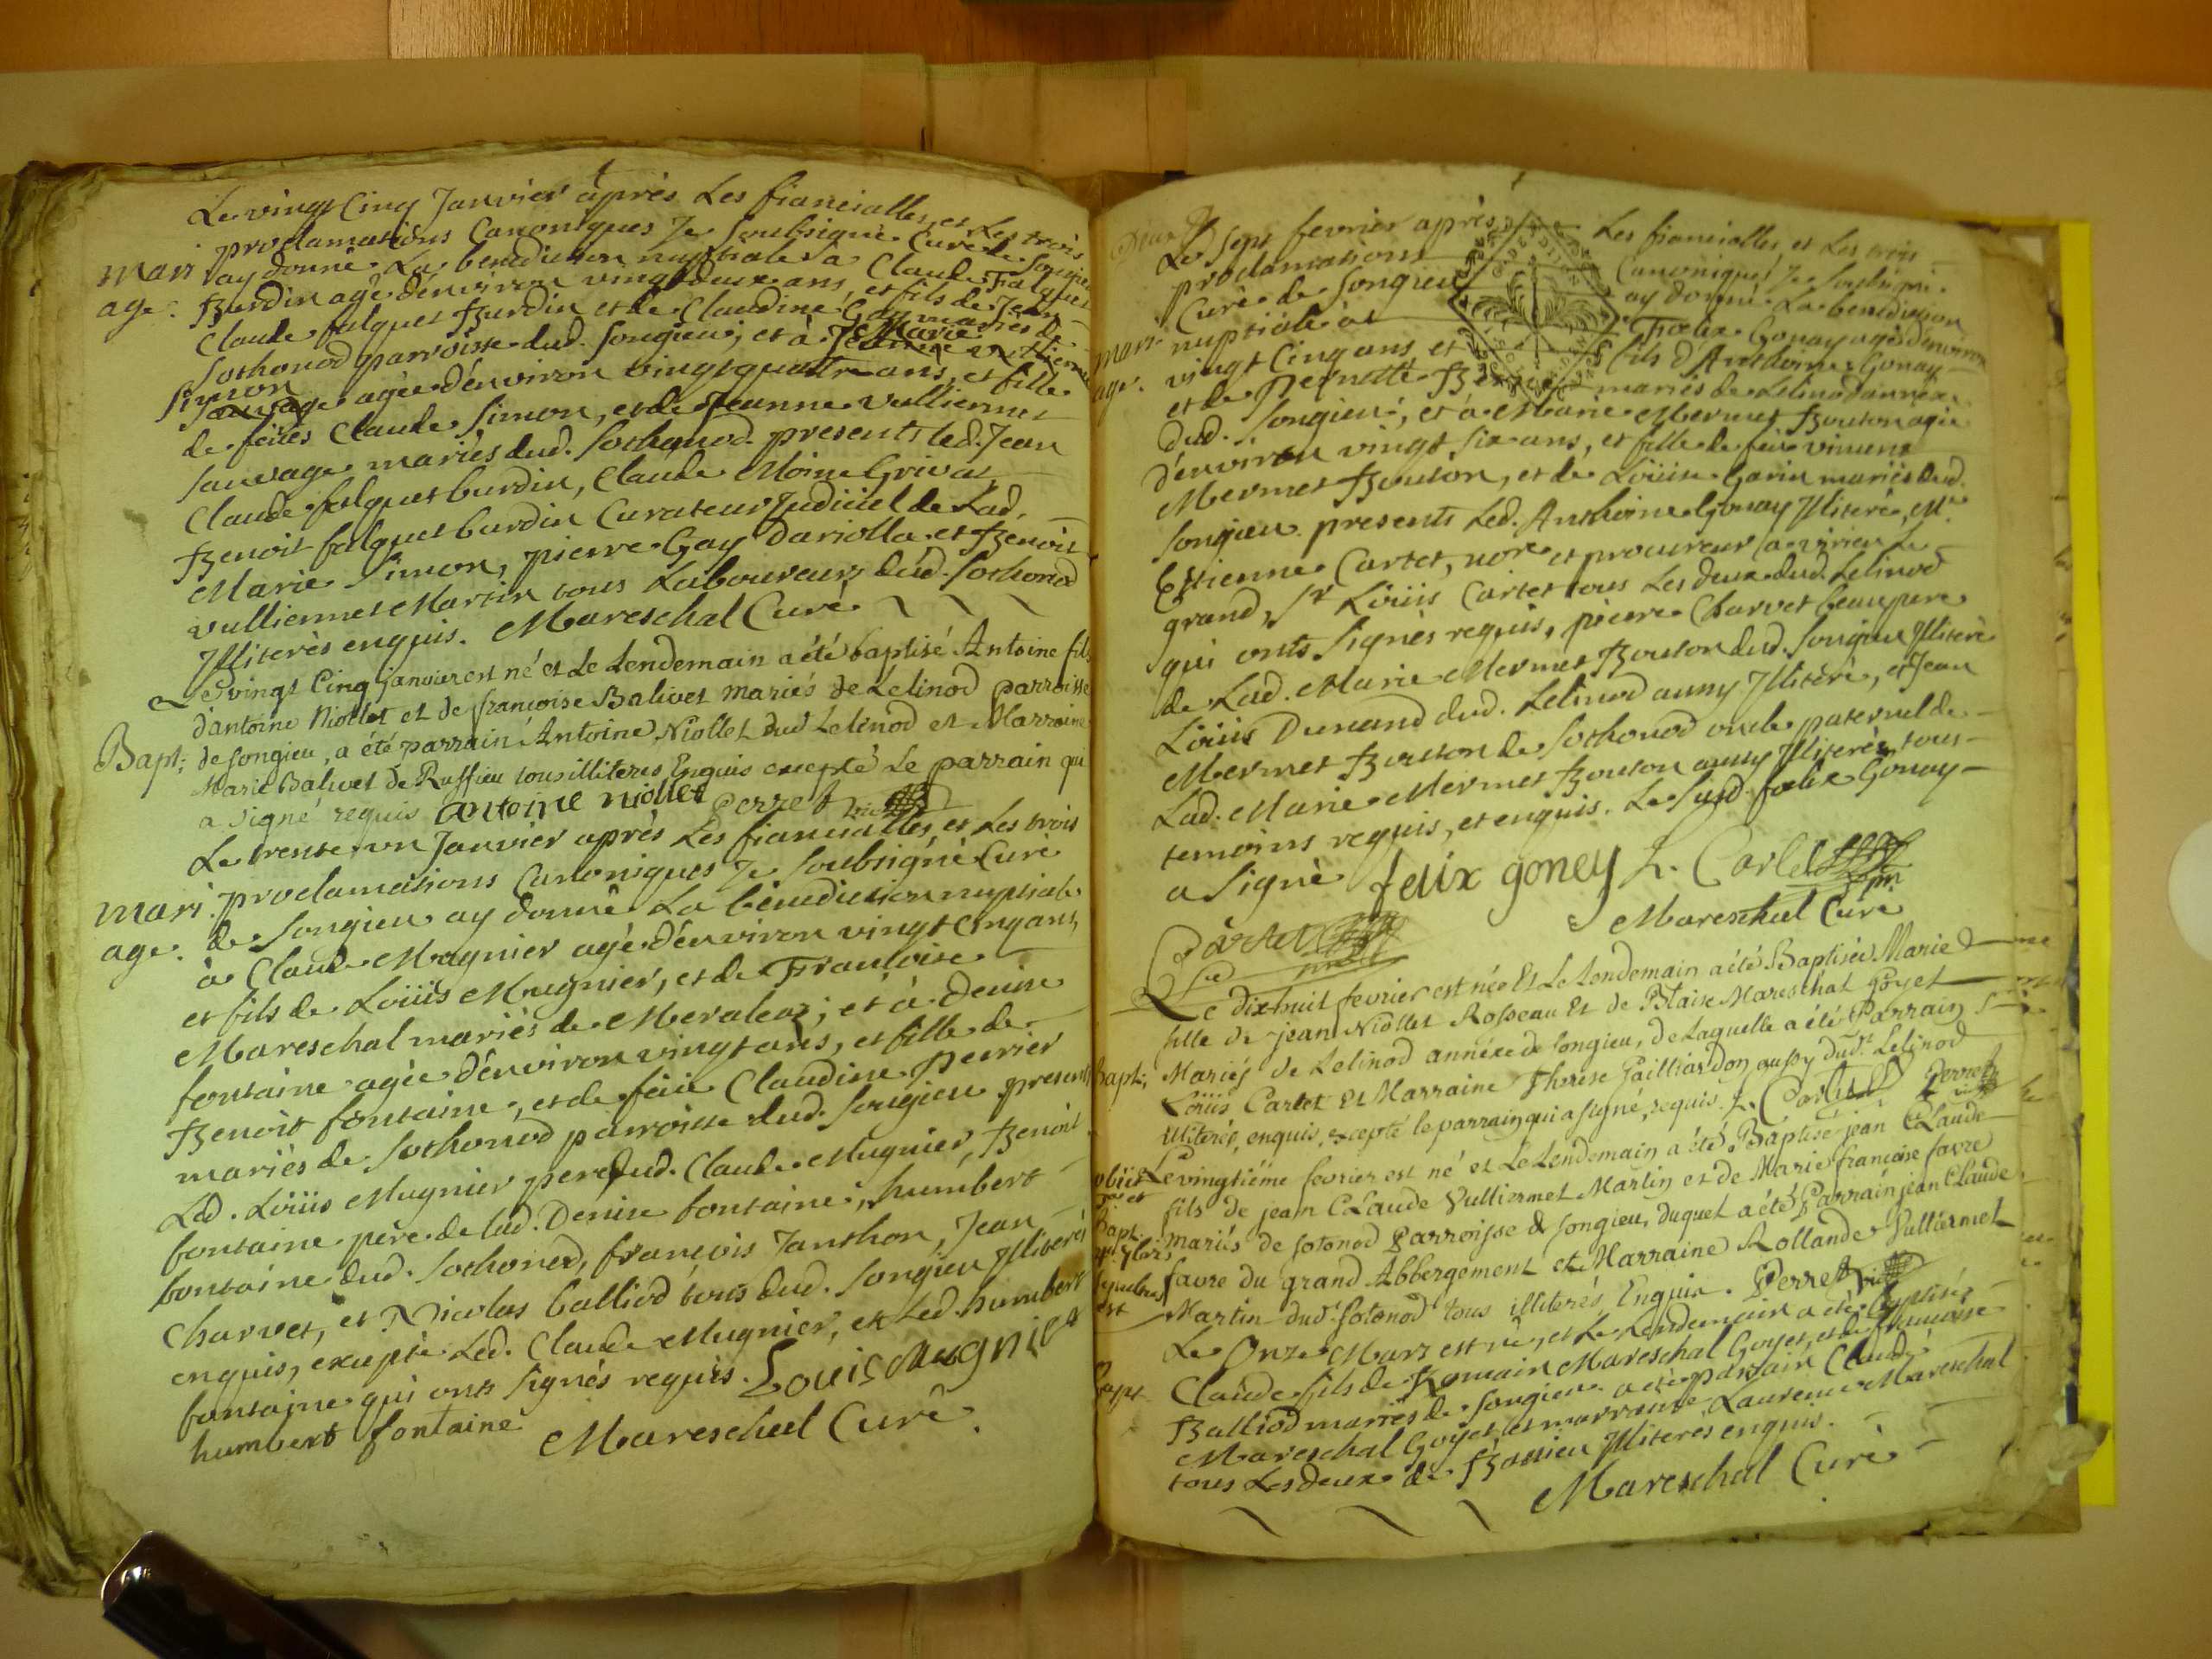 Le vingt Cinq Janvier après Les fiancialles, et Les trois
proclamations Canoniques Je Soubsigné Curé de Songieu
Mari
age.
ay donné La bénédiction nuptiale à Claude Falquet
Burdin agé d'énviron vingt deux ans, et fils de Jean
Claude falquet Burdin et de Claudine Gay mariés de
Sothonod parroisse dud. Songieu; et à Marie
Simon
agée d'énviron vingt quatre ans, et fille
de feües Claude Simon, et de Jeanne Vulliermet
Sauvage mariés dud. Sothonod. presents led. Jean
Claude falquet burdin, Claude Moine Grivat,
Benoit falquet burdin Curateur Judiciel de Lad.
Marie Simon, pierre Gay Dariolla et Benoit
vulliermet Martin tous Laboureurs dud. Sothonod
Illiterés enquis. Mareschal Curé
Bapt;
Le vingt Cinq janvier est né et Le Lendemain a été baptisé Antoine fils
d'antoine Niollet et de françoise Balivet mariés de Lelinod parroisse
de Songieu, a été parrain Antoine Niollet dud Lelinod et Marraine
Marie Balivet de Ruffieu tous illiteres Enquis excepté Le parrain qui
a signé requis antoine niollet Perret vic
Le trente un Janvier après Les fiancialles, et Les trois
Mari
age.
proclamations Canoniques Je Soubsigné Curé
de Songieu ay donné La bénédiction nuptiale
à Claude Mugnier agé d'énviron vingt Cinq ans,
et fils de Loüis Mugnier, et de Françoise
Mareschal mariés de Meraleaz; et à Denise
fontaine agée d'énviron vingt ans, et fille de
Benoit fontaine, et de feüe Claudine perrier
mariés de Sothonod parroisse dud. Songieu presents
Led. Loüis Mugnier pere dud. Claude Mugnier, Benoit
fontaine père de lad. Denise fontaine, humbert
fontaine dud. Sothonod, françois Janthon, Jean
Charvet, et Nicolas balliod tous dud. Songieu Illiterés
enquis, excepté Led. Claude Mugnier, et Led. humbert
fontaine qui onts signés requis. Louis Mugnier
humbert fontaine Mareschal Curé.
Le Sept fevrier après Les fiancialles, et Les trois
proclamations Canoniques Je Soubsigné
Curé de Songieu ay donné La benediction
Mari
age.
nuptiale à Foelix Gonay agé d'environ
vingt Cinq ans, et fils d'Anthoine Gonay
et de Pernette mariés de Lelinod annéxe
dud. Songieu, et à Marie Mermet Bouton agée
d'énviron vingt Six ans, et fille de feu vincent
Mermet Bouton, et de Loüise Garin mariés dud.
Songieu. presents Led. Anthoine Gonay Illiteré, Mr.
Estienne Cartet, nore et procureur à virieu Le
grand, Sr Loüis Cartet tous Les deux dud. Lelinod
qui onts signés requis, pierre Charvet beaupere
de Lad. Marie Mermet Bouton dud. Songieu Illiteré
Loüis Dunand dud. Lelinod aussy Illiteré, et Jean
Mermet Bouton de Sothonod oncle paternel de
Lad. Marie Mermet Bouton aussy Illiteré, tous
temoins requis, et enquis. Le susd. foelix Gonay
a Signé felix goney L. Cartet
Mareschal Curé
Cartet
Bapt;
Le dix huit fevrier est née Et Le Lendemain a été Baptisée Marie
fille de jean Niollet Rosseau Et de Blaise Mareschal goyet
Mariés de Lelinod annéxe de Songieu, de Laquelle a été Parrain Sr
Loüis Cartet Et Marraine Therese Gailliardon aussy dud.t Lelinod
illiterés, enquis, excepté le parrain qui a signé, requis. L. Cartet Perret vic
obiit
Bapt.
Le vingtiéme fevrier est né et Le Lendemain a été Baptisé jean Claude
fils de jean Claude Vulliermet Martin et de Marie françoise favre
mariés de Sotonod Parroisse de Songieu, duquel a été Parrain jean Claude
favre du grand Abbergement et Marraine Rollande Vulliermet
Martin dud. Sotonod tous illiterés Enquis. Perret vic
Bapt
Le Onze Mars est né, et Le Lendemain a été baptisé
Claude fils de Romain Mareschal Goyet, et de françoise
Balliod mariés de Songieu a été parrain Claude
Mareschal Goyet, et marraine Laurence Mareschal
tous Les deux de Bassieu Illiterés enquis.
Mareschal Curé